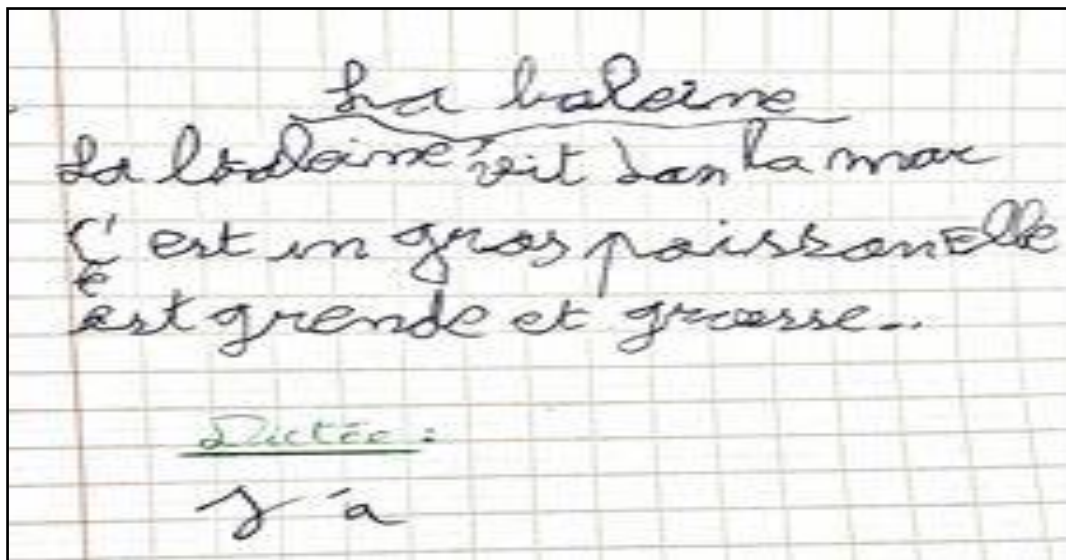 La baleine
La baleine vit dan la mar
C'est un gros poissson Elle
est grende et grosse..
Dictée :
J'a